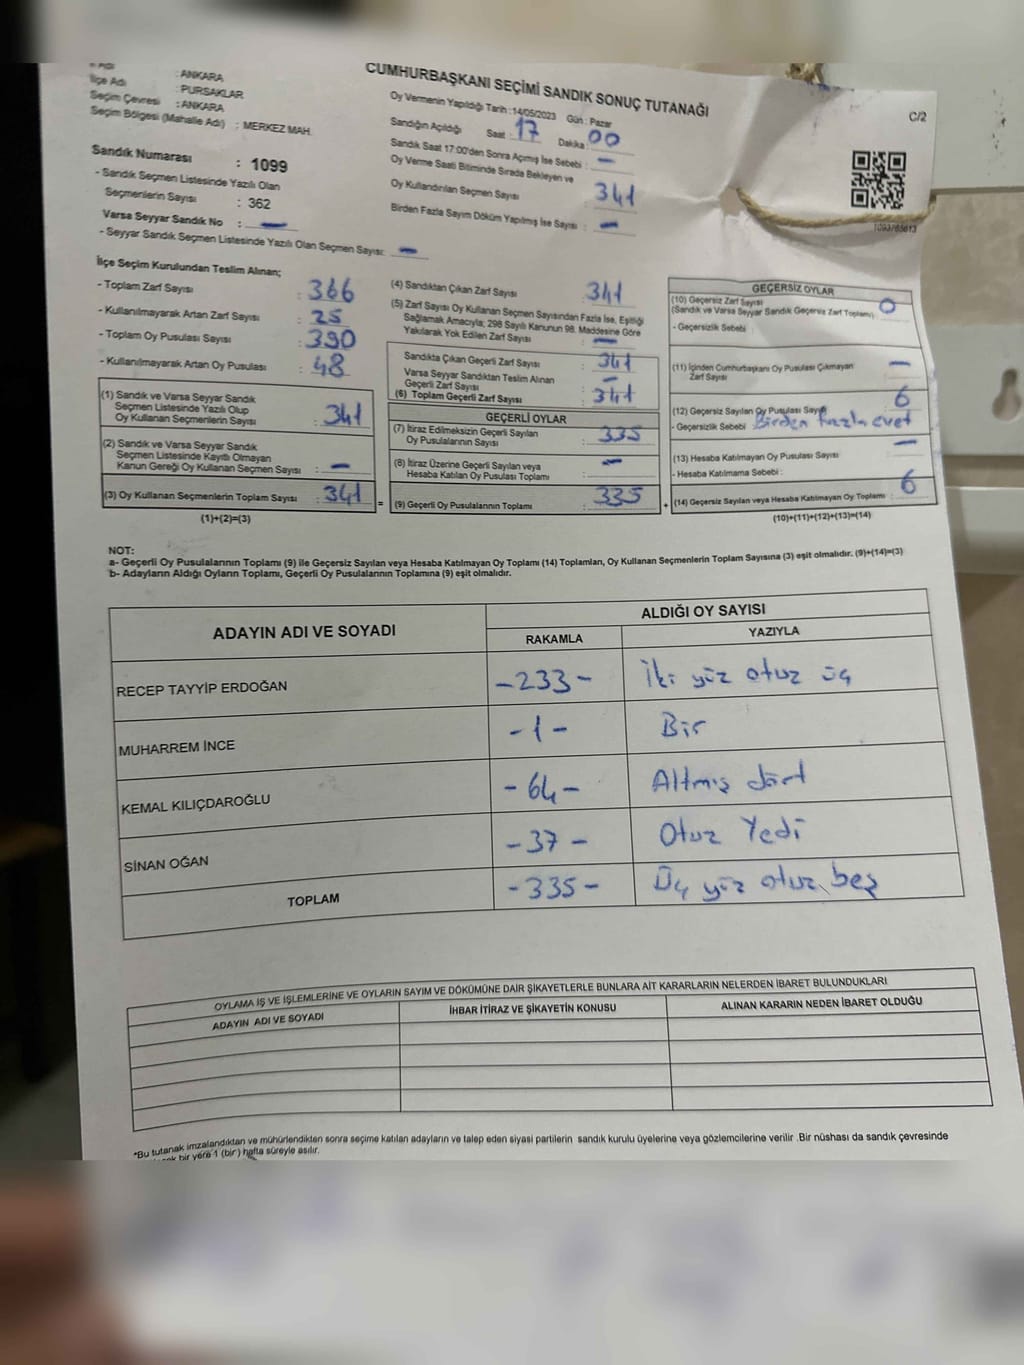 : ANKARA
İlçe Adı : PURSAKLAR
Seçim Çevresi : ANKARA
Seçim Bölgesi (Mahalle Adı) : MERKEZ MAH.
Sandık Numarası : 1099
- Sandık Seçmen Listesinde Yazılı Olan
Seçmenlerin Sayısı : 362
Varsa Seyyar Sandık No : -
- Seyyar Sandık Seçmen Listesinde Yazılı Olan Seçmen Sayısı: -
CUMHURBAŞKANI SEÇİMİ SANDIK SONUÇ TUTANAĞI
Oy Vermenin Yapıldığı Tarih :14/05/2023 Gün : Pazar
Sandığın Açıldığı Saat : 17 Dakika : 00
Sandık Saat 17:00'den Sonra Açımış İse Sebebi : -
Oy Verme Saati Bitiminde Sırada Bekleyen ve
Oy Kullandırılan Seçmen Sayısı : 341
Birden Fazla Sayım Döküm Yapılmış İse Sayısı : -
C/2
1093765613
İlçe Seçim Kurulundan Teslim Alınan;
- Toplam Zarf Sayısı : 366
- Kullanılmayarak Artan Zarf Sayısı : 25
- Toplam Oy Pusulası Sayısı : 390
- Kullanılmayarak Artan Oy Pusulası : 48
(1) Sandık ve Varsa Seyyar Sandık
Seçmen Listesinde Yazılı Olup
Oy Kullanan Seçmenlerin Sayısı : 341
(2) Sandık ve Varsa Seyyar Sandık
Seçmen Listesinde Kayıtlı Olmayan
Kanun Gereği Oy Kullanan Seçmen Sayısı : -
(3) Oy Kullanan Seçmenlerin Toplam Sayısı : 341
(1)+(2)=(3)
(4) Sandıktan Çıkan Zarf Sayısı : 341
(5) Zarf Sayısı Oy Kullanan Seçmen Sayısından Fazla İse, Eşitliği
Sağlamak Amacıyla; 298 Sayılı Kanunun 98. Maddesine Göre
Yakılarak Yok Edilen Zarf Sayısı : -
Sandıkta Çıkan Geçerli Zarf Sayısı : 341
Varsa Seyyar Sandıktan Teslim Alınan
Geçerli Zarf Sayısı : -
(6) Toplam Geçerli Zarf Sayısı : 341
GEÇERLİ OYLAR
(7) İtiraz Edilmeksizin Geçerli Sayılan
Oy Pusulalarının Sayısı : 335
(8) İtiraz Üzerine Geçerli Sayılan veya
Hesaba Katılan Oy Pusulası Toplamı : -
= (9) Geçerli Oy Pusulalarının Toplamı : 335
GEÇERSİZ OYLAR
(10) Geçersiz Zarf Sayısı
(Sandık ve Varsa Seyyar Sandık Geçersiz Zarf Toplamı) : 0
- Geçersizlik Sebebi :
(11) İçinden Cumhurbaşkanı Oy Pusulası Çıkmayan
Zarf Sayısı : -
(12) Geçersiz Sayılan Oy Pusulası Sayısı : 6
- Geçersizlik Sebebi : Birden fazla evet
(13) Hesaba Katılmayan Oy Pusulası Sayısı : -
- Hesaba Katılmama Sebebi :
+ (14) Geçersiz Sayılan veya Hesaba Katılmayan Oy Toplamı : 6
(10)+(11)+(12)+(13)=(14)
NOT:
a- Geçerli Oy Pusulalarının Toplamı (9) ile Geçersiz Sayılan veya Hesaba Katılmayan Oy Toplamı (14) Toplamları, Oy Kullanan Seçmenlerin Toplam Sayısına (3) eşit olmalıdır. (9)+(14)=(3)
b- Adayların Aldığı Oyların Toplamı, Geçerli Oy Pusulalarının Toplamına (9) eşit olmalıdır.
ADAYIN ADI VE SOYADI
ALDIĞI OY SAYISI
RAKAMLA YAZIYLA
RECEP TAYYİP ERDOĞAN -233- İki yüz otuz üç
MUHARREM İNCE -1- Bir
KEMAL KILIÇDAROĞLU -64- Altmış dört
SİNAN OĞAN -37- Otuz Yedi
TOPLAM -335- Üç yüz otuz beş
OYLAMA İŞ VE İŞLEMLERİNE VE OYLARIN SAYIM VE DÖKÜMÜNE DAİR ŞİKAYETLERLE BUNLARA AİT KARARLARIN NELERDEN İBARET BULUNDUKLARI
ADAYIN ADI VE SOYADI İHBAR İTİRAZ VE ŞİKAYETİN KONUSU ALINAN KARARIN NEDEN İBARET OLDUĞU
*Bu tutanak imzalandıktan ve mühürlendikten sonra seçime katılan adayların ve talep eden siyasi partilerin sandık kurulu üyelerine veya gözlemcilerine verilir .Bir nüshası da sandık çevresinde
bir yere 1 (bir) hafta süreyle asılır.